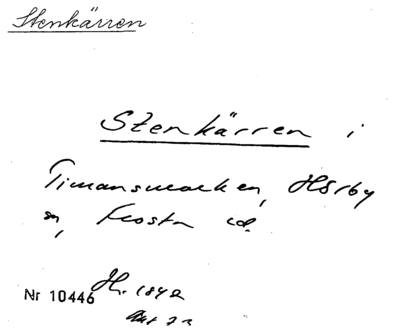 Stenkärren
Stenkärren i
Timansmarken, Hörby
sn, Frosta hd.
Nr 10446 Hr. 1842